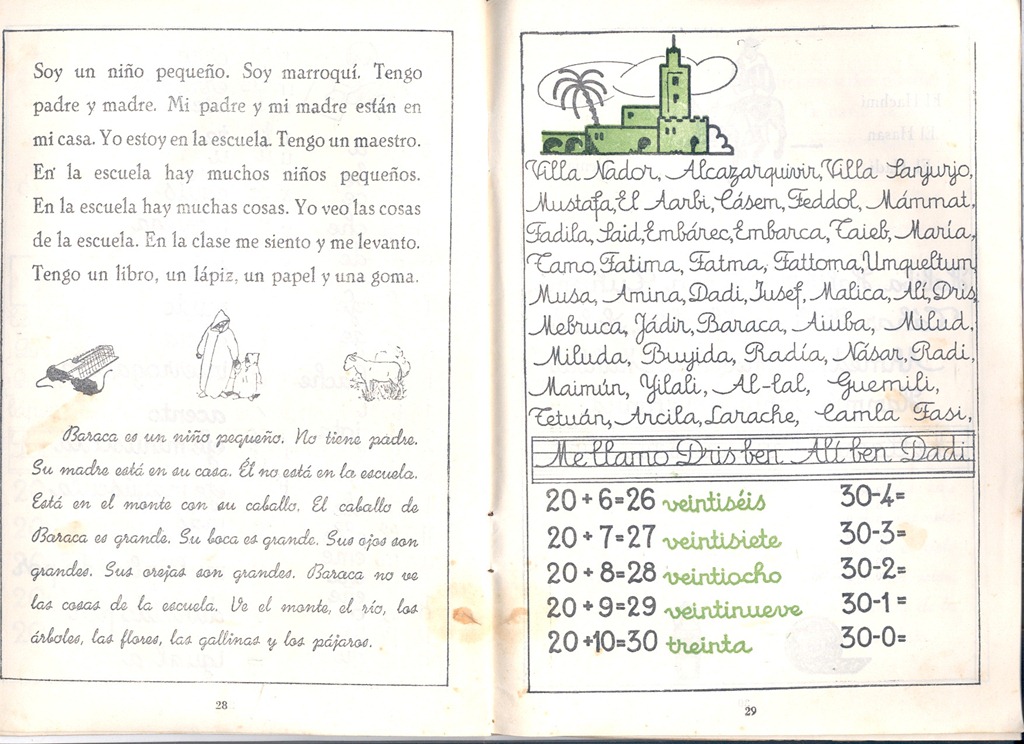 Soy un niño pequeño. Soy marroquí. Tengo
padre y madre. Mi padre y mi madre están en
mi casa. Yo estoy en la escuela. Tengo un maestro.
En la escuela hay muchos niños pequeños.
En la escuela hay muchas cosas. Yo veo las cosas
de la escuela. En la clase me siento y me levanto.
Tengo un libro, un lápiz, un papel y una goma.
Baraca es un niño pequeño. No tiene padre.
Su madre está en su casa. Él no está en la escuela.
Está en el monte con su caballo. El caballo de
Baraca es grande. Su boca es grande. Sus ojos son
grandes. Sus orejas son grandes. Baraca no ve
las cosas de la escuela. Ve el monte, el río, los
árboles, las flores, las gallinas y los pájaros.
28
Villa Nador, Alcazarquivir, Villa Sanjurjo,
Mustafa, El Aarbi, Cásem, Feddol, Mámmat,
Fadila, Said, Embárec, Embarca, Taieb, María,
Tamo, Fatima, Fatma, Fattoma, Umqueltum
Musa, Amina, Dadi, Iusef, Malica, Alí, Dris
Mebruca, Jádir, Baraca, Aiuba, Milud.
Miluda, Buyida, Radía, Násar, Radi,
Maimún, Yilali, Al-lal, Guemili,
Tetuán, Arcila, Larache, Camla Fasi,
Me llamo Dris ben Alí ben Dadi
20+6=26 veintiséis 30-4=
20+7=27 veintisiete 30-3=
20+8=28 veintiocho 30-2=
20+9=29 veintinueve 30-1=
20+10=30 treinta 30-0=
29